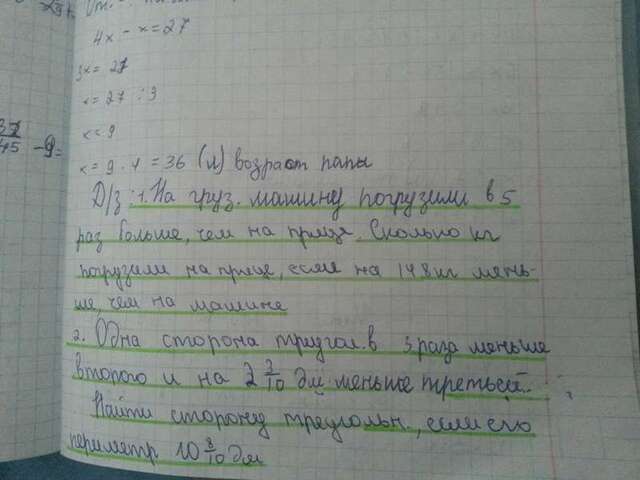 4x - x = 27
3x = 27
x = 27 : 3
x = 9
x = 9 · 4 = 36 (л) возраст папы
Д/з: 1. На груз. машину погрузили в 5
раз больше, чем на прице. Сколько кг
погрузили на прице, если на 148 кг мень-
ше, чем на машине
2. Одна сторона треугол. в 3 раза меньше
второго и на 2 2/10 дм меньше третьей.
Найти сторону треугольн., если его
периметр 10 8/10 дм
37/45 - 9 =